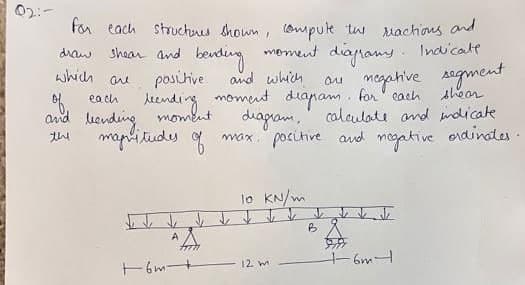 Q2:-
for each structures shown, compute the reactions and
draw shear and bending moment diagrams. Indicate
which are positive and which are negative segment
of each bending moment diagram. for each shear
and bending moment diagram, calculate and indicate
the magnitudes of max. positive and negative ordinates.
10 KN/m
A B
6m 12 m 6m